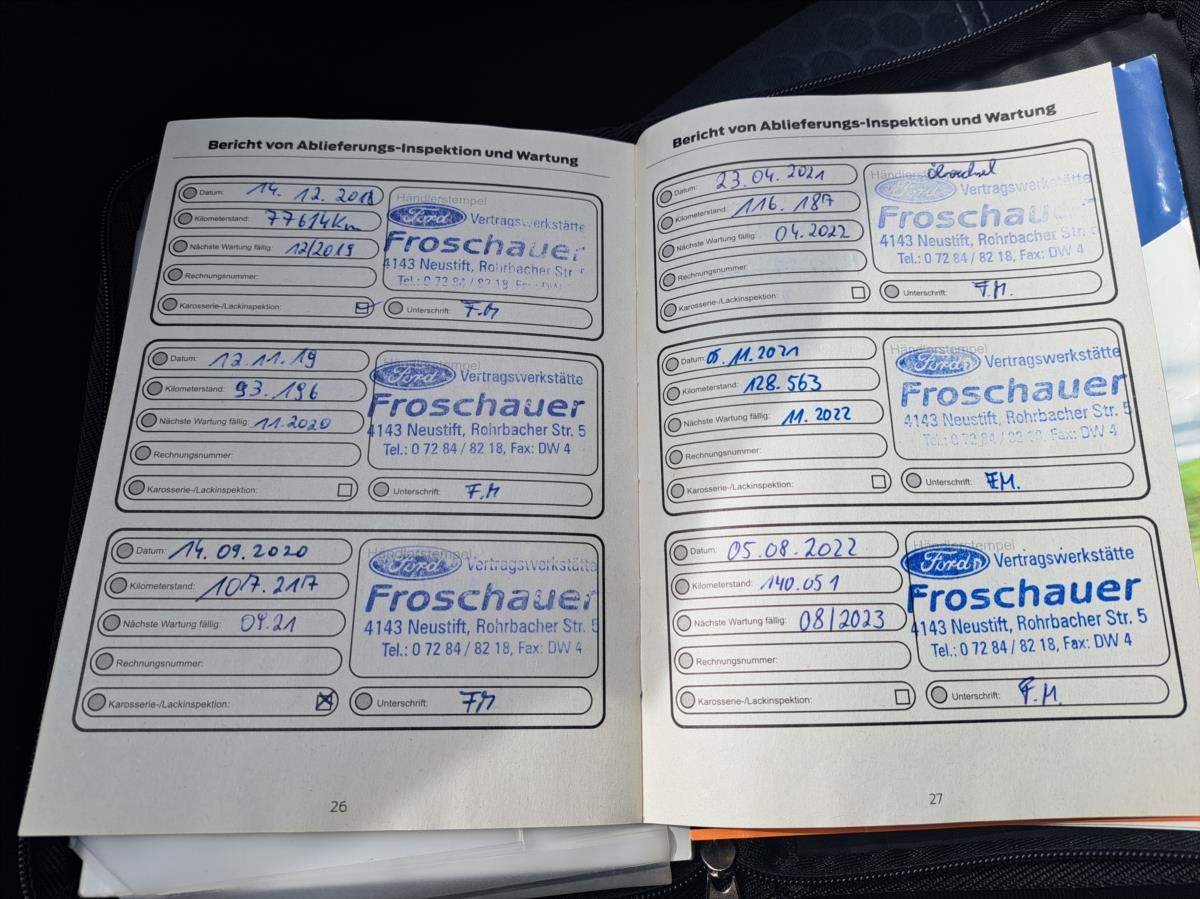 Bericht von Ablieferungs-Inspektion und Wartung
Datum: 14. 12. 2018
Kilometerstand: 77614Km
Nächste Wartung fällig: 12/2019
Rechnungsnummer:
Karosserie-/Lackinspektion:
Händlerstempel
Ford Vertragswerkstätte
Froschauer
4143 Neustift, Rohrbacher Str. 5
Tel.: 0 72 84 / 82 18, Fax: DW 4
Unterschrift: F.M
Datum: 12.11.19
Kilometerstand: 93.196
Nächste Wartung fällig: 11.2020
Rechnungsnummer:
Karosserie-/Lackinspektion:
Händlerstempel
Ford Vertragswerkstätte
Froschauer
4143 Neustift, Rohrbacher Str. 5
Tel.: 0 72 84 / 82 18, Fax: DW 4
Unterschrift: F.M
Datum: 14.09.2020
Kilometerstand: 107.217
Nächste Wartung fällig: 09.21
Rechnungsnummer:
Karosserie-/Lackinspektion:
Händlerstempel
Ford Vertragswerkstätte
Froschauer
4143 Neustift, Rohrbacher Str. 5
Tel.: 0 72 84 / 82 18, Fax: DW 4
Unterschrift: FM
26
Bericht von Ablieferungs-Inspektion und Wartung
Datum: 23.04.2021
Kilometerstand: 116.187
Nächste Wartung fällig: 04.2022
Rechnungsnummer
Karosserie-/Lackinspektion:
Händlerstempel Ölwechsel
Ford Vertragswerkstätte
Froschauer
4143 Neustift, Rohrbacher Str. 5
Tel.: 0 72 84 / 82 18, Fax: DW 4
Unterschrift: F.M.
Datum: 05.11.2021
Kilometerstand: 128.563
Nächste Wartung fällig: 11.2022
Rechnungsnummer:
Karosserie-/Lackinspektion:
Händlerstempel
Ford Vertragswerkstätte
Froschauer
4143 Neustift, Rohrbacher Str. 5
Tel.: 0 72 84 / 82 18, Fax: DW 4
Unterschrift: FM.
Datum: 05.08.2022
Kilometerstand: 140.051
Nächste Wartung fällig: 08/2023
Rechnungsnummer:
Karosserie-/Lackinspektion:
Händlerstempel
Ford Vertragswerkstätte
Froschauer
4143 Neustift, Rohrbacher Str. 5
Tel.: 0 72 84 / 82 18, Fax: DW 4
Unterschrift: F.M.
27